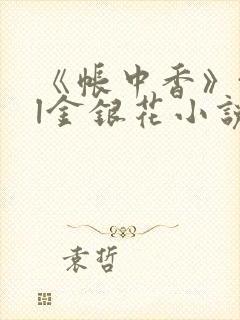 《帐中香》
|金银花小说
袁哲